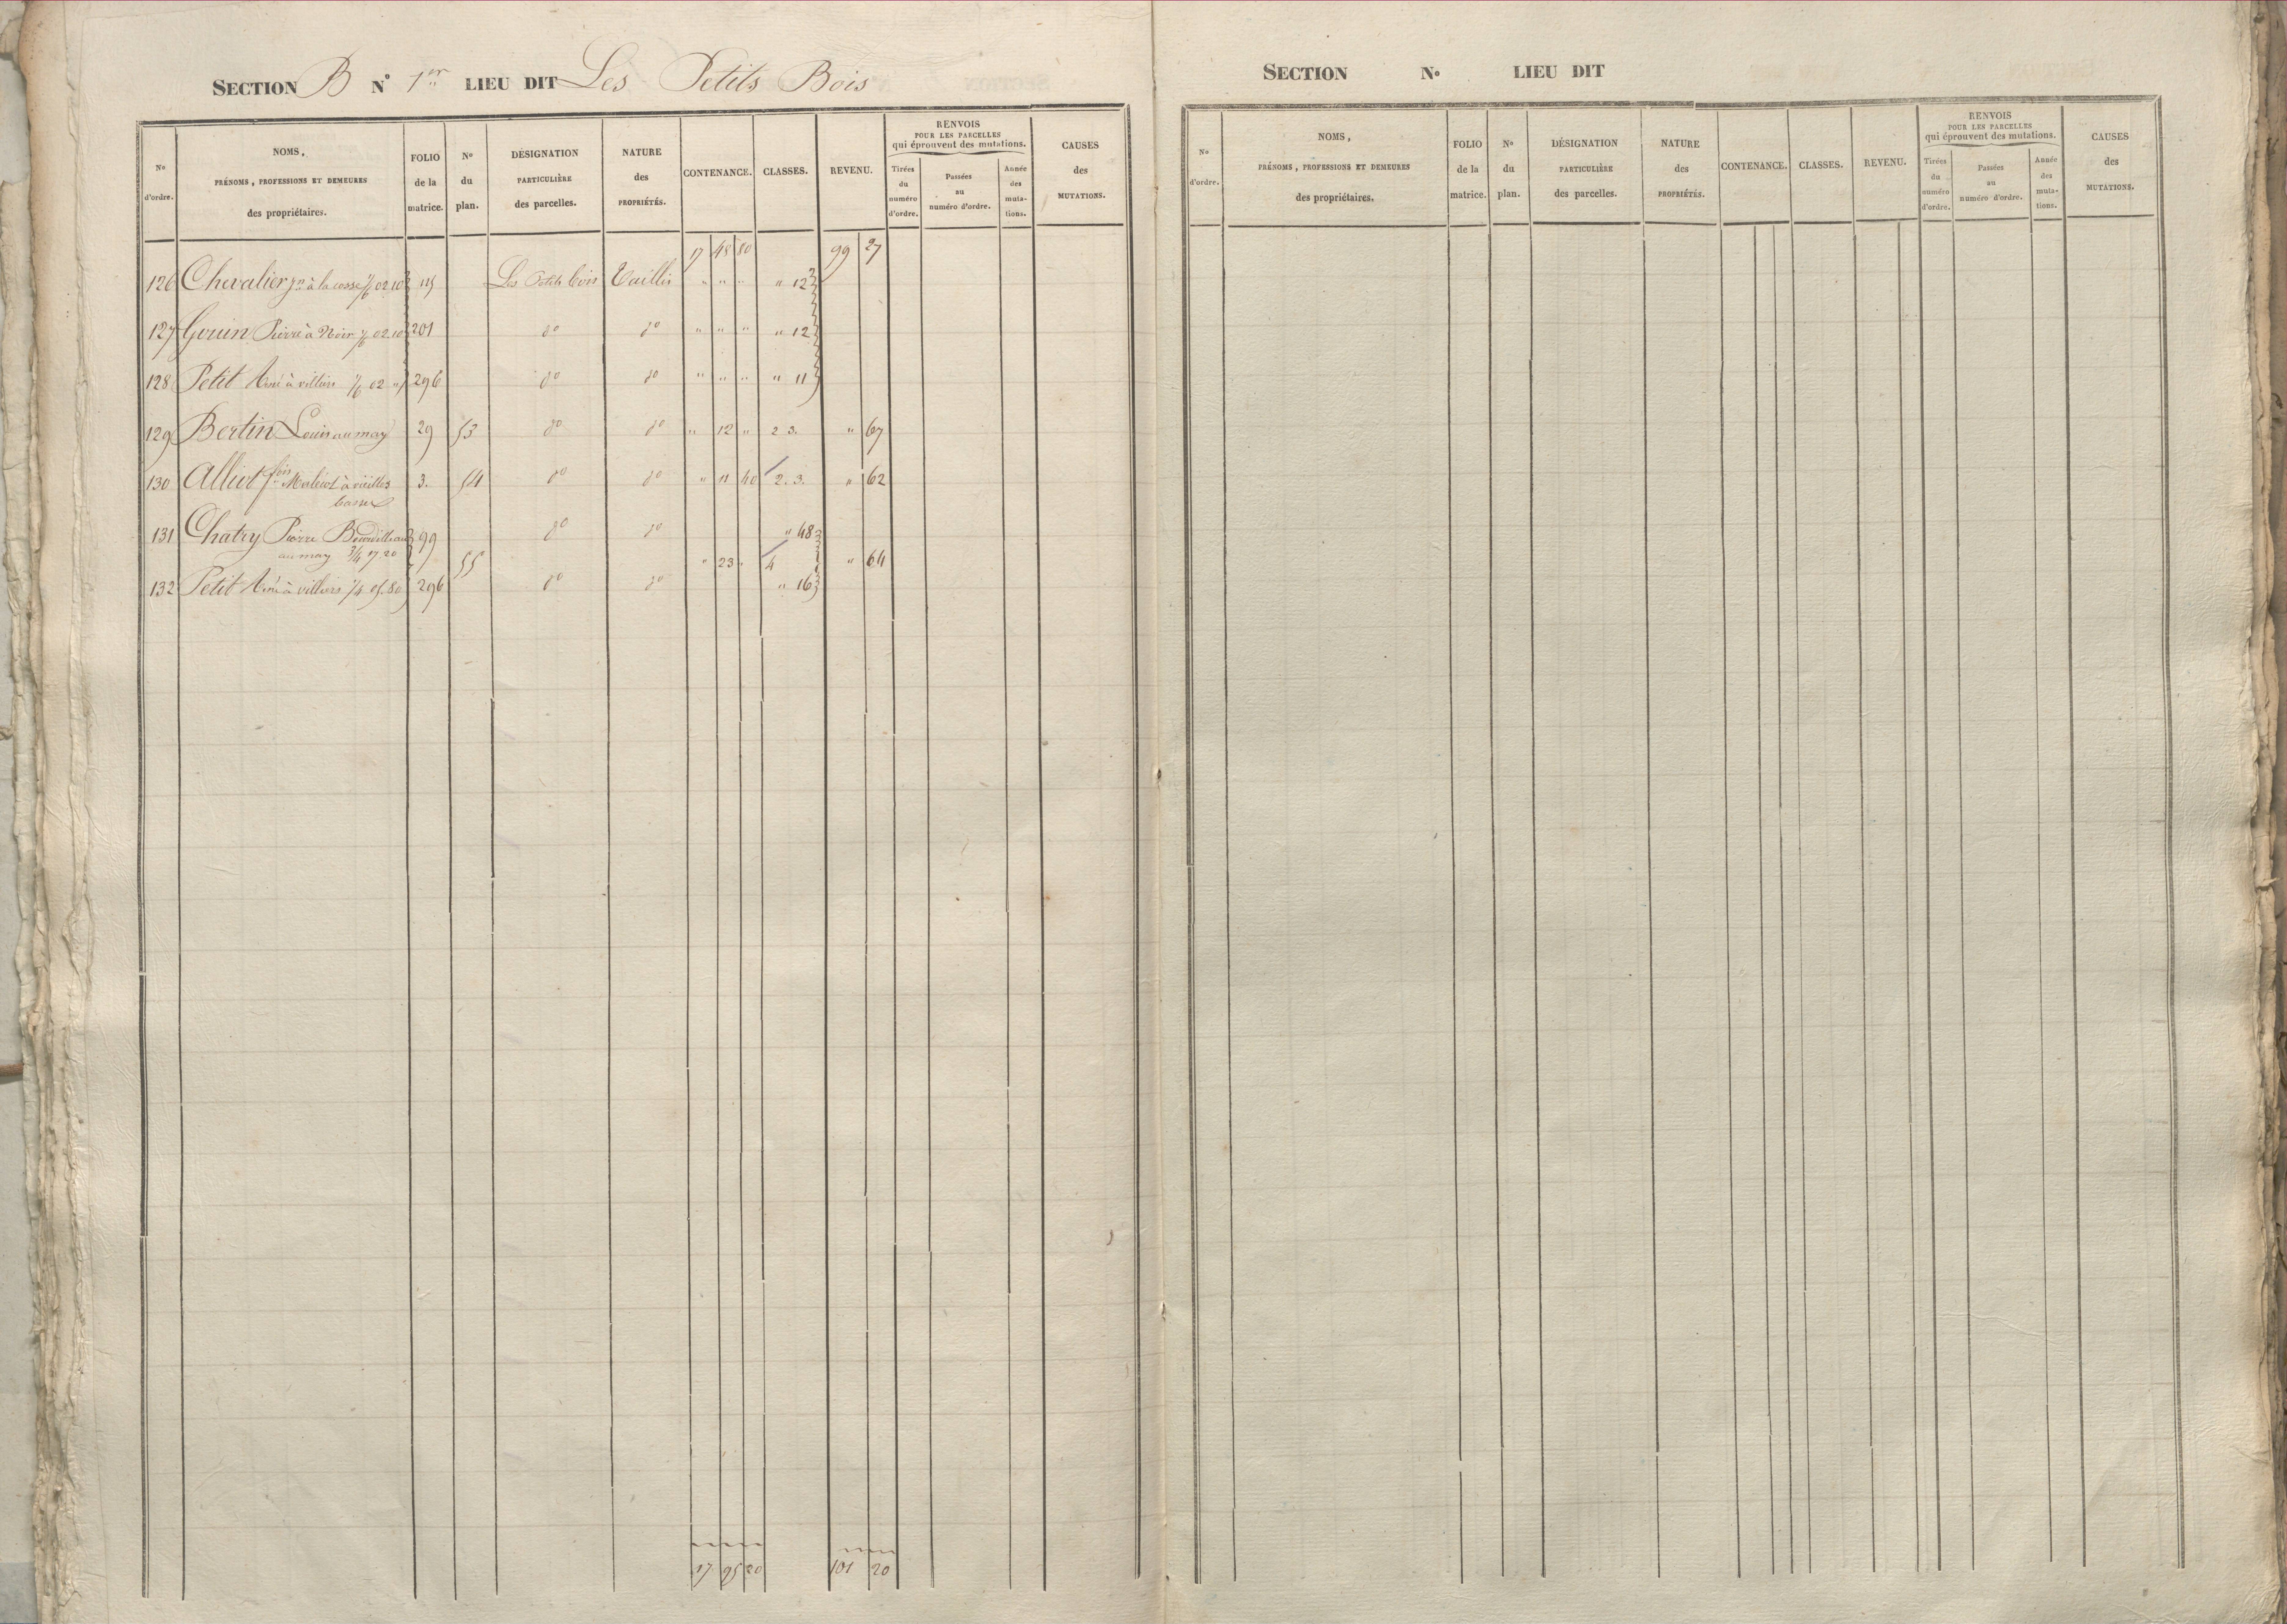 SECTION B N° 1er LIEU DIT Les Petits Bois
N° d'ordre.
NOMS, PRÉNOMS, PROFESSIONS ET DEMEURES des propriétaires.
FOLIO de la matrice.
N° du plan.
DÉSIGNATION PARTICULIÈRE des parcelles.
NATURE des PROPRIÉTÉS.
CONTENANCE.
CLASSES.
REVENU.
RENVOIS POUR LES PARCELLES qui éprouvent des mutations.
Tirées du numéro d'ordre.
Passées au numéro d'ordre.
Année des mutations.
CAUSES des MUTATIONS.
17 48 80 99 27
126 Chevalier à la cosse 1/6 02.10 115 Les Petits bois Taillis " " " " 12
127 Gouin Pierre à Noir 1/6 02.10 201 do do " " " " 12
128 Petit Aimé à villiers 1/6 02 " 296 do do " " " " 11
129 Bertin Louis au may 29 53 do do " 12 " 2.3. " 67
130 Alliot fois à vieilles 3. 54 do do " 11 40 2.3. " 62
131 Chatry Pierre 99 do do " 48
au may 3/4 17.20 55 " 23 " 4 " 64
132 Petit Aimé à villiers 1/4 05.80 296 do do " 16
17 95 20 101 20
SECTION N° LIEU DIT
N° d'ordre.
NOMS, PRÉNOMS, PROFESSIONS ET DEMEURES des propriétaires.
FOLIO de la matrice.
N° du plan.
DÉSIGNATION PARTICULIÈRE des parcelles.
NATURE des PROPRIÉTÉS.
CONTENANCE.
CLASSES.
REVENU.
RENVOIS POUR LES PARCELLES qui éprouvent des mutations.
Tirées du numéro d'ordre.
Passées au numéro d'ordre.
Année des mutations.
CAUSES des MUTATIONS.